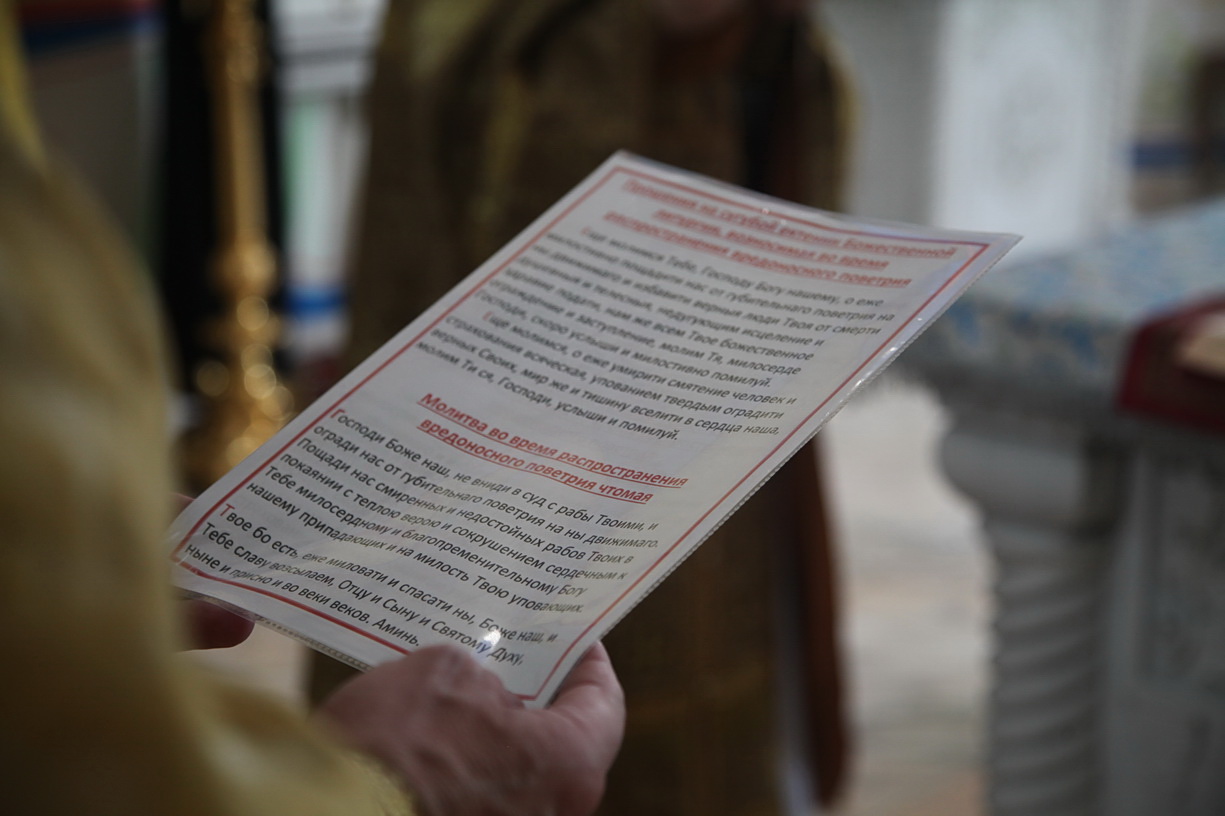 Прошения на сугубой ектении Божественной
литургии, возносимая во время
распространения вредоносного поветрия
Еще молимся Тебе, Господу Богу нашему, о еже
милостивно пощадити нас от губительнаго поветрия на
ны движимаго и избавити верныя люди Твоя от смерти
и телесныя, недугующим исцеление и
здравие подати, нам же всем Твое божественное
ограждение и заступление, молим Тя, милосерде
Господи, скоро услыши и милостивно помилуй.
Еще молимся, о еже умирити смятение человек и
страхования всяческая, упованием твердым оградити
верных Своих, мир же и тишину вселити в сердца наша,
молим Ти ся, Господи, услыши и помилуй.
Молитва во время распространения
вредоносного поветрия чтомая
Господи Боже наш, не вниди в суд с рабы Твоими, и
огради нас от губительнаго поветрия на ны движимаго.
Пощади нас смиренных и недостойных рабов Твоих в
покаянии с теплою верою и сокрушением сердечным к
Тебе милосердному и благопременительному Богу
нашему припадающих и на милость Твою уповающих.
Твое бо есть, еже миловати и спасати ны, Боже наш, и
Тебе славу возсылаем, Отцу и Сыну и Святому Духу,
ныне и присно и во веки веков. Аминь.